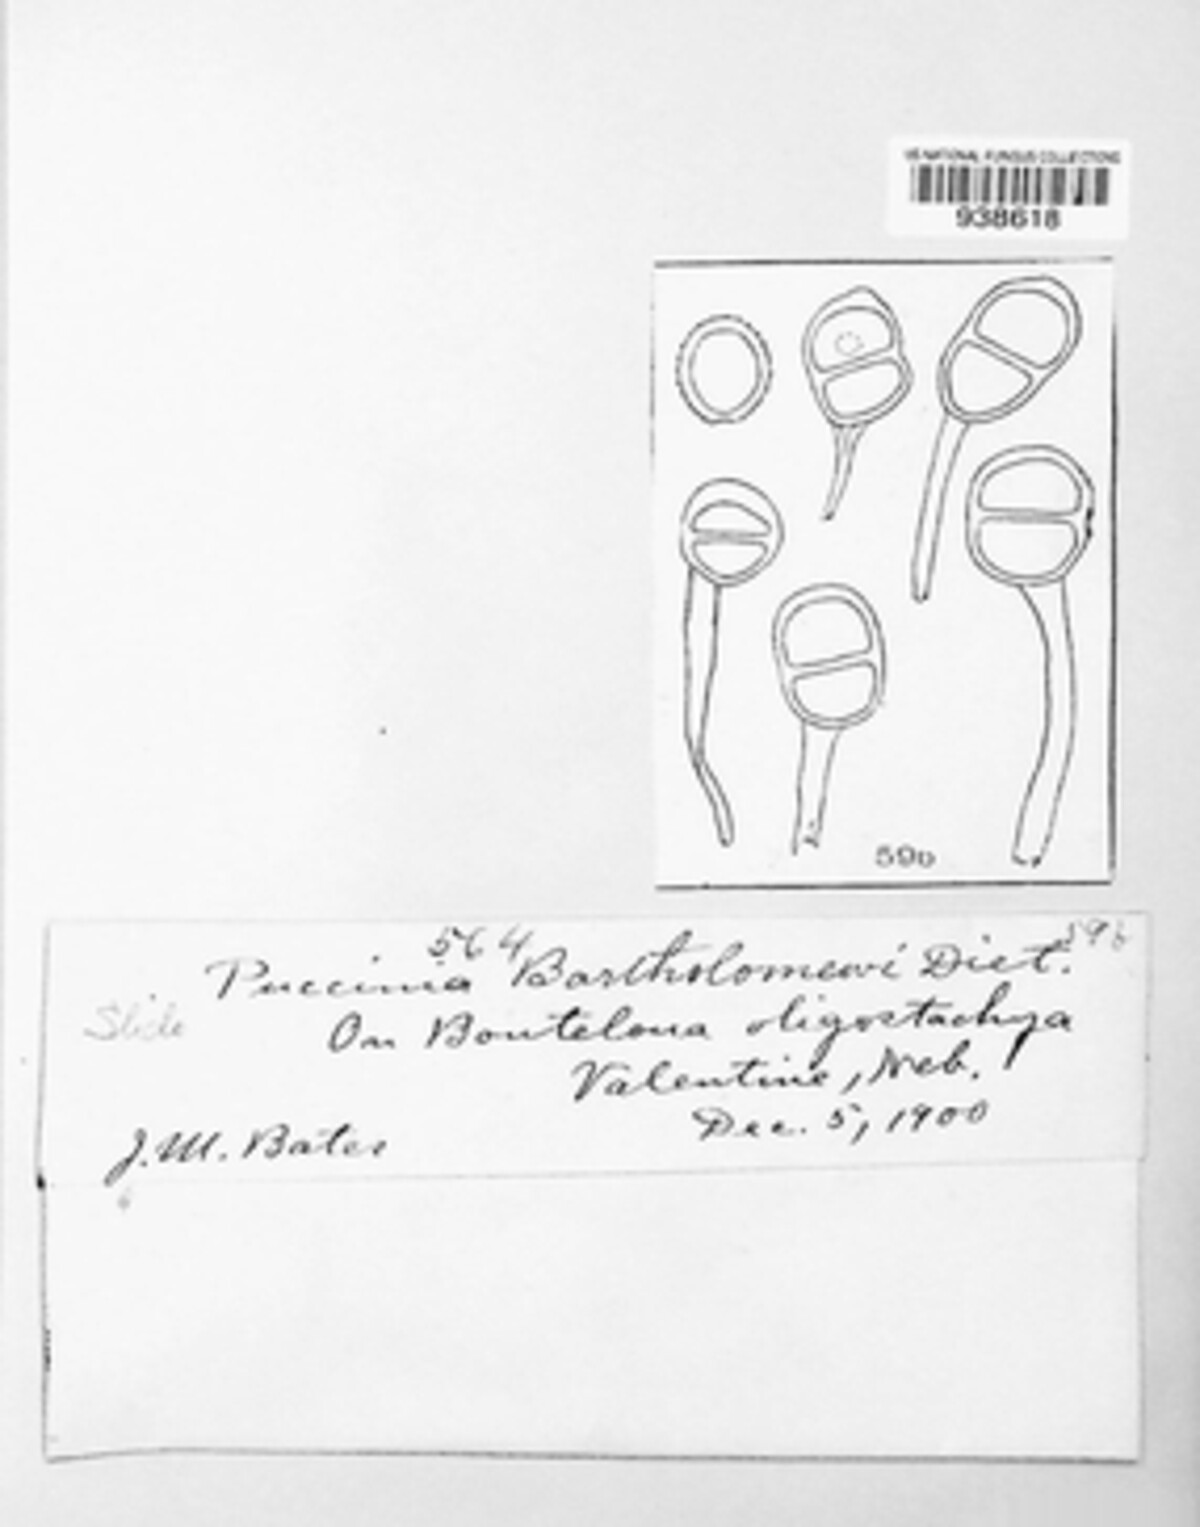 US NATIONAL FUNGUS COLLECTIONS
938618
59b
564 59b
Puccinia Bartholomewi Diet.
Slide
On Bouteloua oligostachya
Valentine, Neb.
Dec. 5, 1900
J. M. Bates